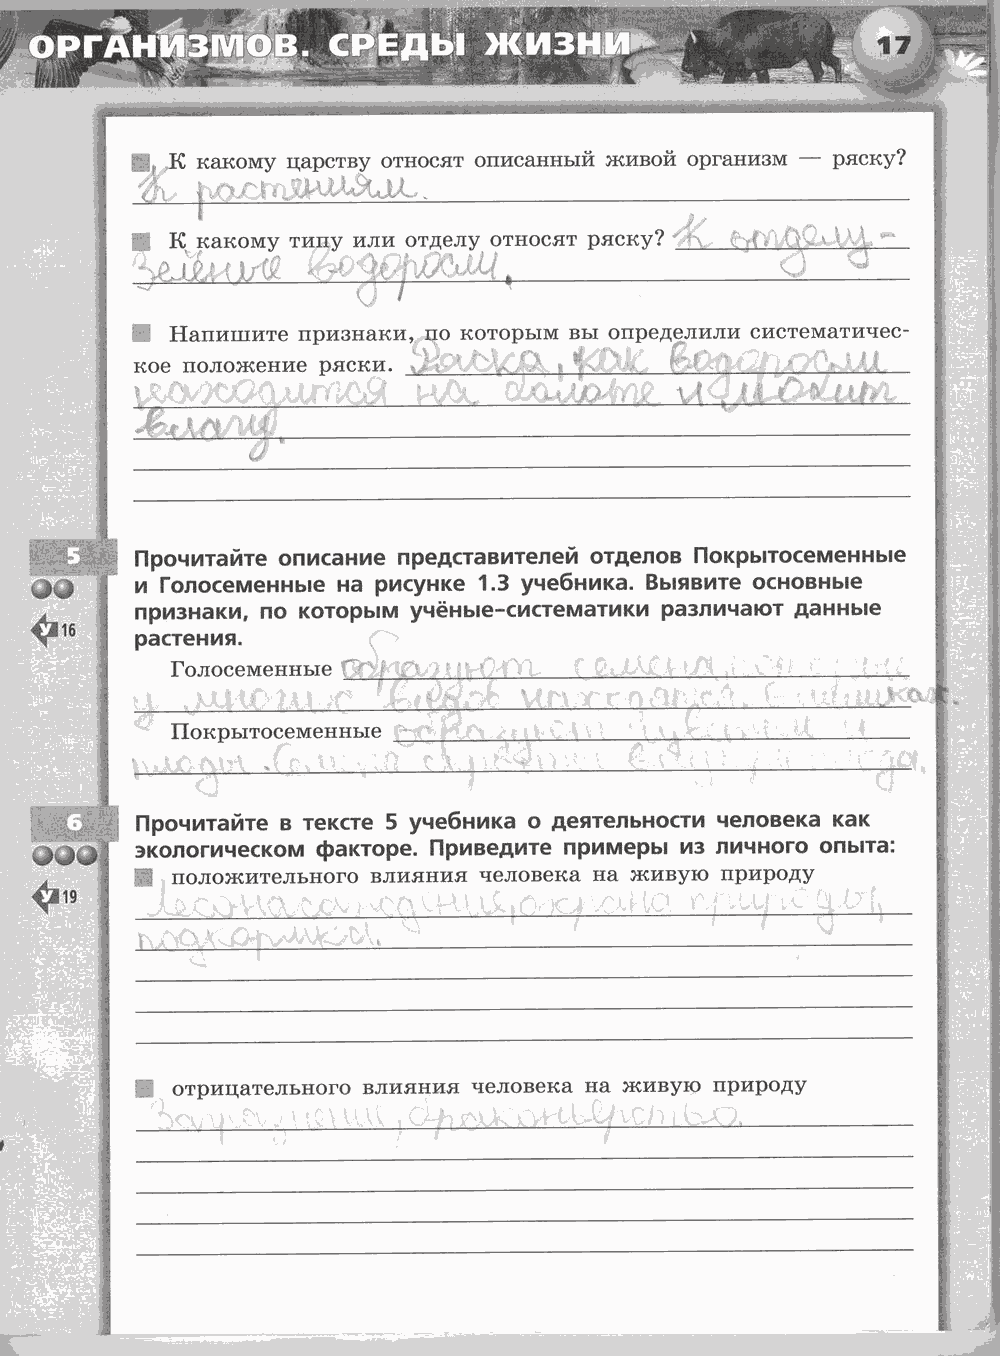 ОРГАНИЗМОВ. СРЕДЫ ЖИЗНИ
17
К какому царству относят описанный живой организм — ряску?
К растениям.
К какому типу или отделу относят ряску? К отделу-
Зелёные водоросли.
Напишите признаки, по которым вы определили систематичес-
кое положение ряски. Ряска, как водоросли
находится на болоте и любит
влагу.
5
Прочитайте описание представителей отделов Покрытосеменные
и Голосеменные на рисунке 1.3 учебника. Выявите основные
признаки, по которым учёные-систематики различают данные
растения.
У 16
Голосеменные образуют семена,
у многих видов находятся в шишках.
Покрытосеменные образуют цветки и
плоды. Семена скрыты внутри
6
Прочитайте в тексте 5 учебника о деятельности человека как
экологическом факторе. Приведите примеры из личного опыта:
положительного влияния человека на живую природу
У 19
Лесонасаждения, охрана природы,
подкормка.
отрицательного влияния человека на живую природу
браконьерство.